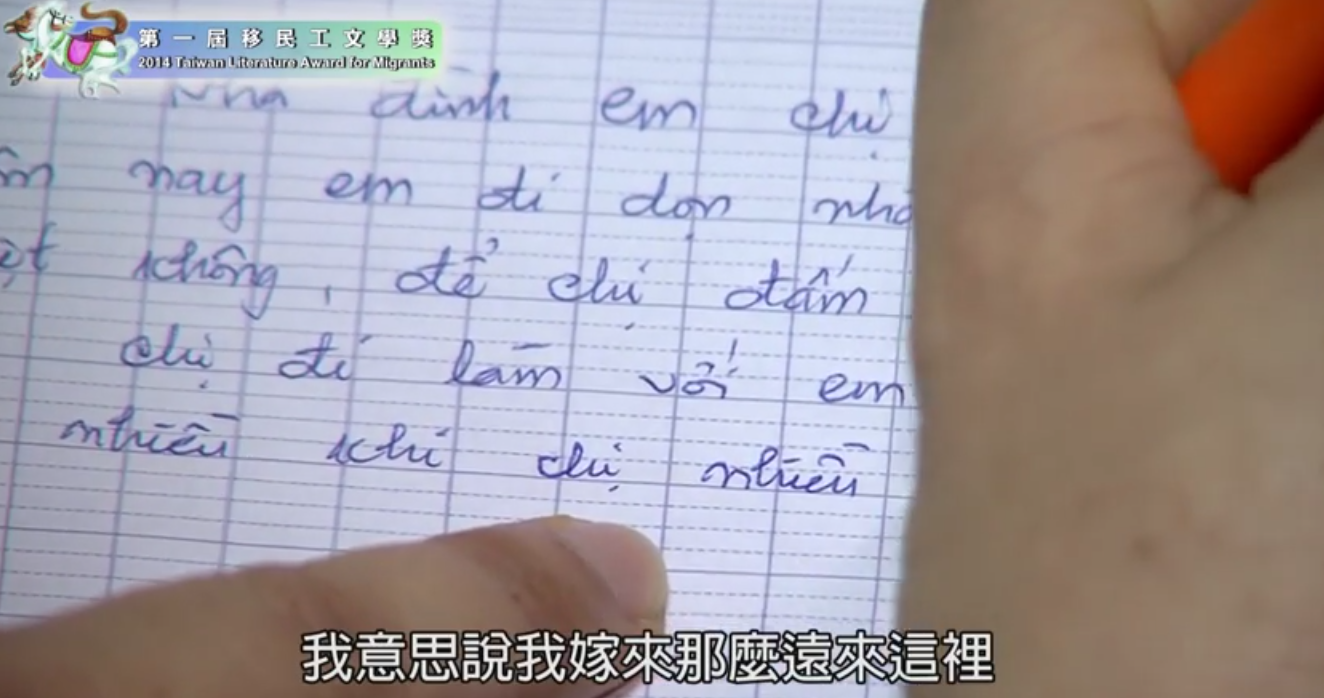 第一屆移民工文學獎
2014 Taiwan Literature Award for Migrants
Nhà đình em chị
nay em đi dọn nhà
không, để chị đấm
chị đi làm với em
nhiều khi chị nhiều
我意思說我嫁來那麼遠來這裡